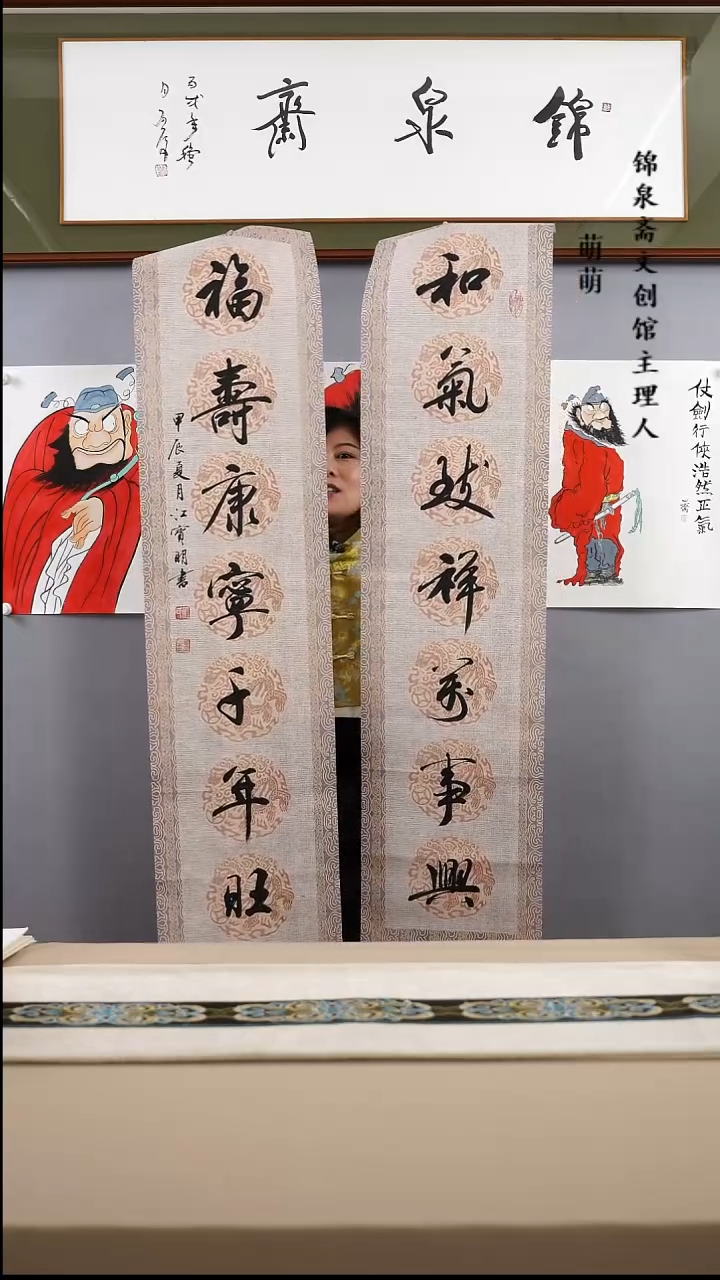 錦泉齋
锦泉斋文创馆主理人
萌萌
和氣致祥萬事興
福壽康寧千年旺
甲辰夏月江寳明書
仗劍行俠浩然正氣